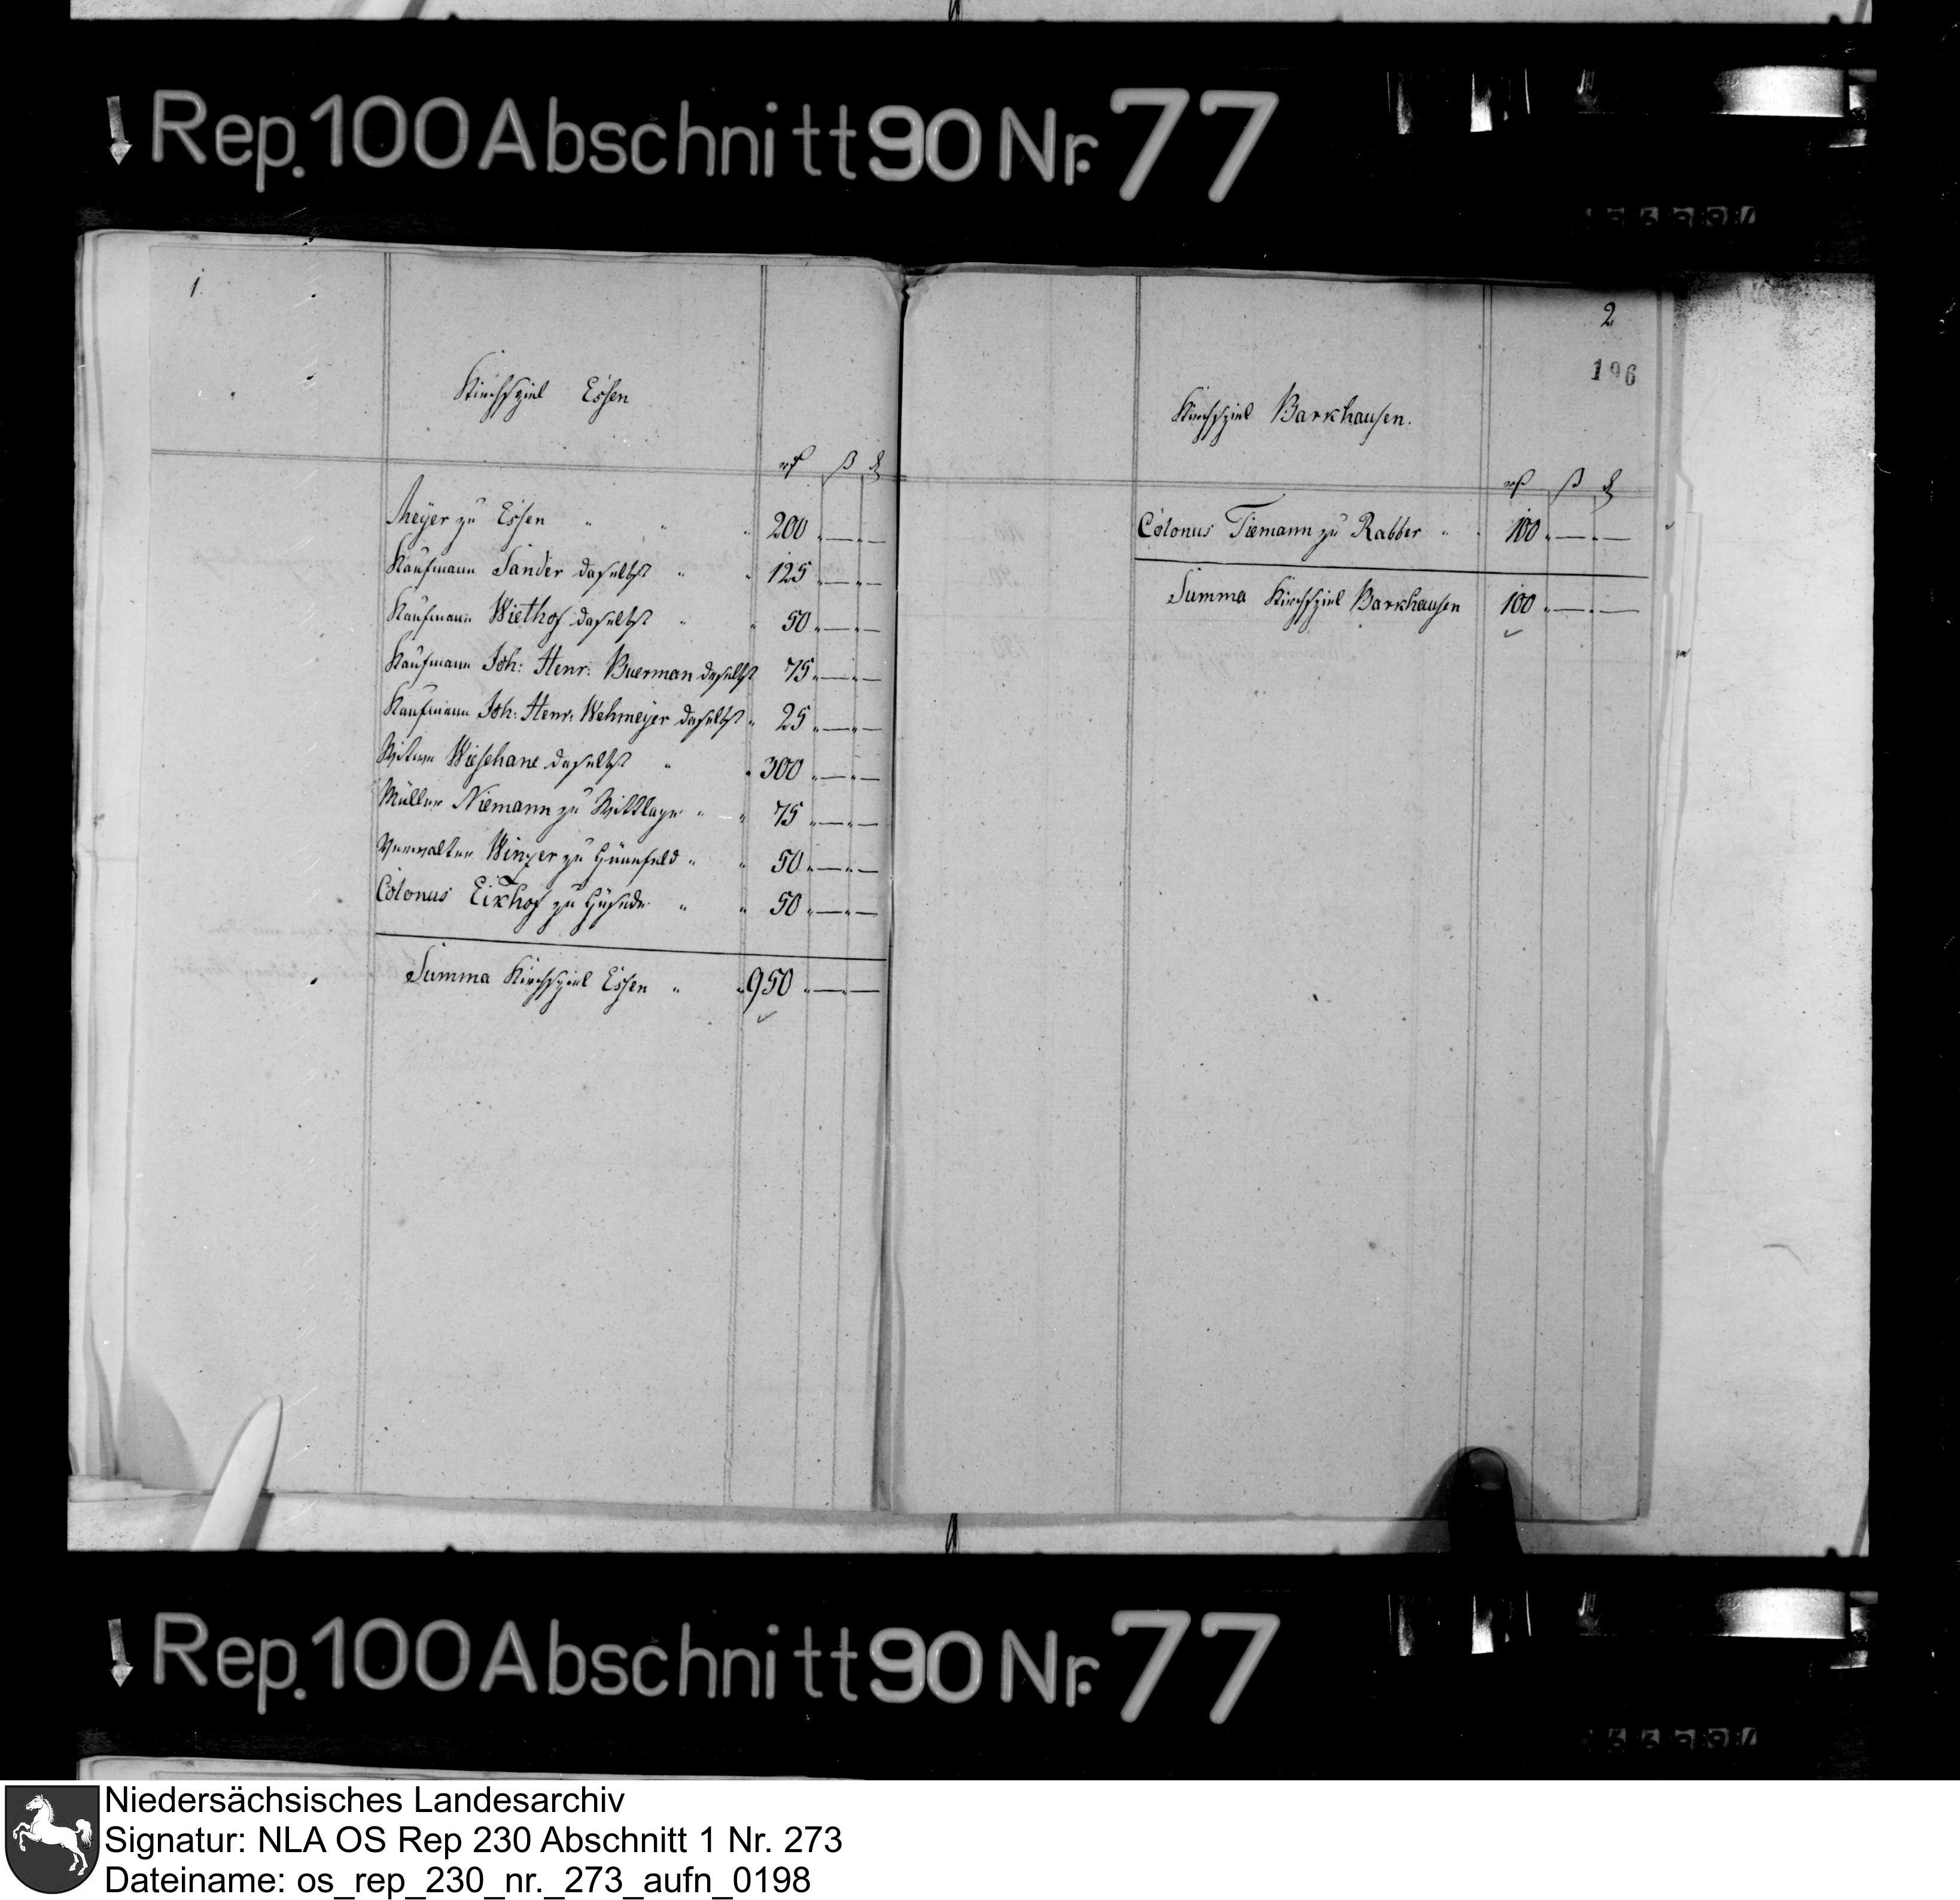 Rep. 100 Abschnitt 90 Nr. 77
1.
Kirchspiel Essen
rth ß d
Meÿer zu Essen " " " 200 " — " —
Kaufmann Sander daselbst " " 125 " — " —
Kaufmann Wiethof daselbst " " 50 " — " —
Kaufmann Joh: Henr: Buerman daselbst 75 " — " —
Kaufmann Joh: Henr: Wehmeÿer daselbst " 25 " — " —
Witwe Wiesehane daselbst " " 300 " — " —
Müller Niemann zu Wittlage " " 75 " — " —
Verwalter Winzer zu Hünnefeld " " 50 " — " —
Colonus Eikhof zu Hüsede " " 50 " — " —
Summa Kirchspiel Essen " " 950 " — " —
2
196
Kirchspiel Barkhausen.
rth ß d
Colonus Tiemann zu Rabber " " 100 " — " —
Summa Kirchspiel Barkhausen 100 " — " —
Rep. 100 Abschnitt 90 Nr. 77
Niedersächsisches Landesarchiv
Signatur: NLA OS Rep 230 Abschnitt 1 Nr. 273
Dateiname: os_rep_230_nr._273_aufn_0198